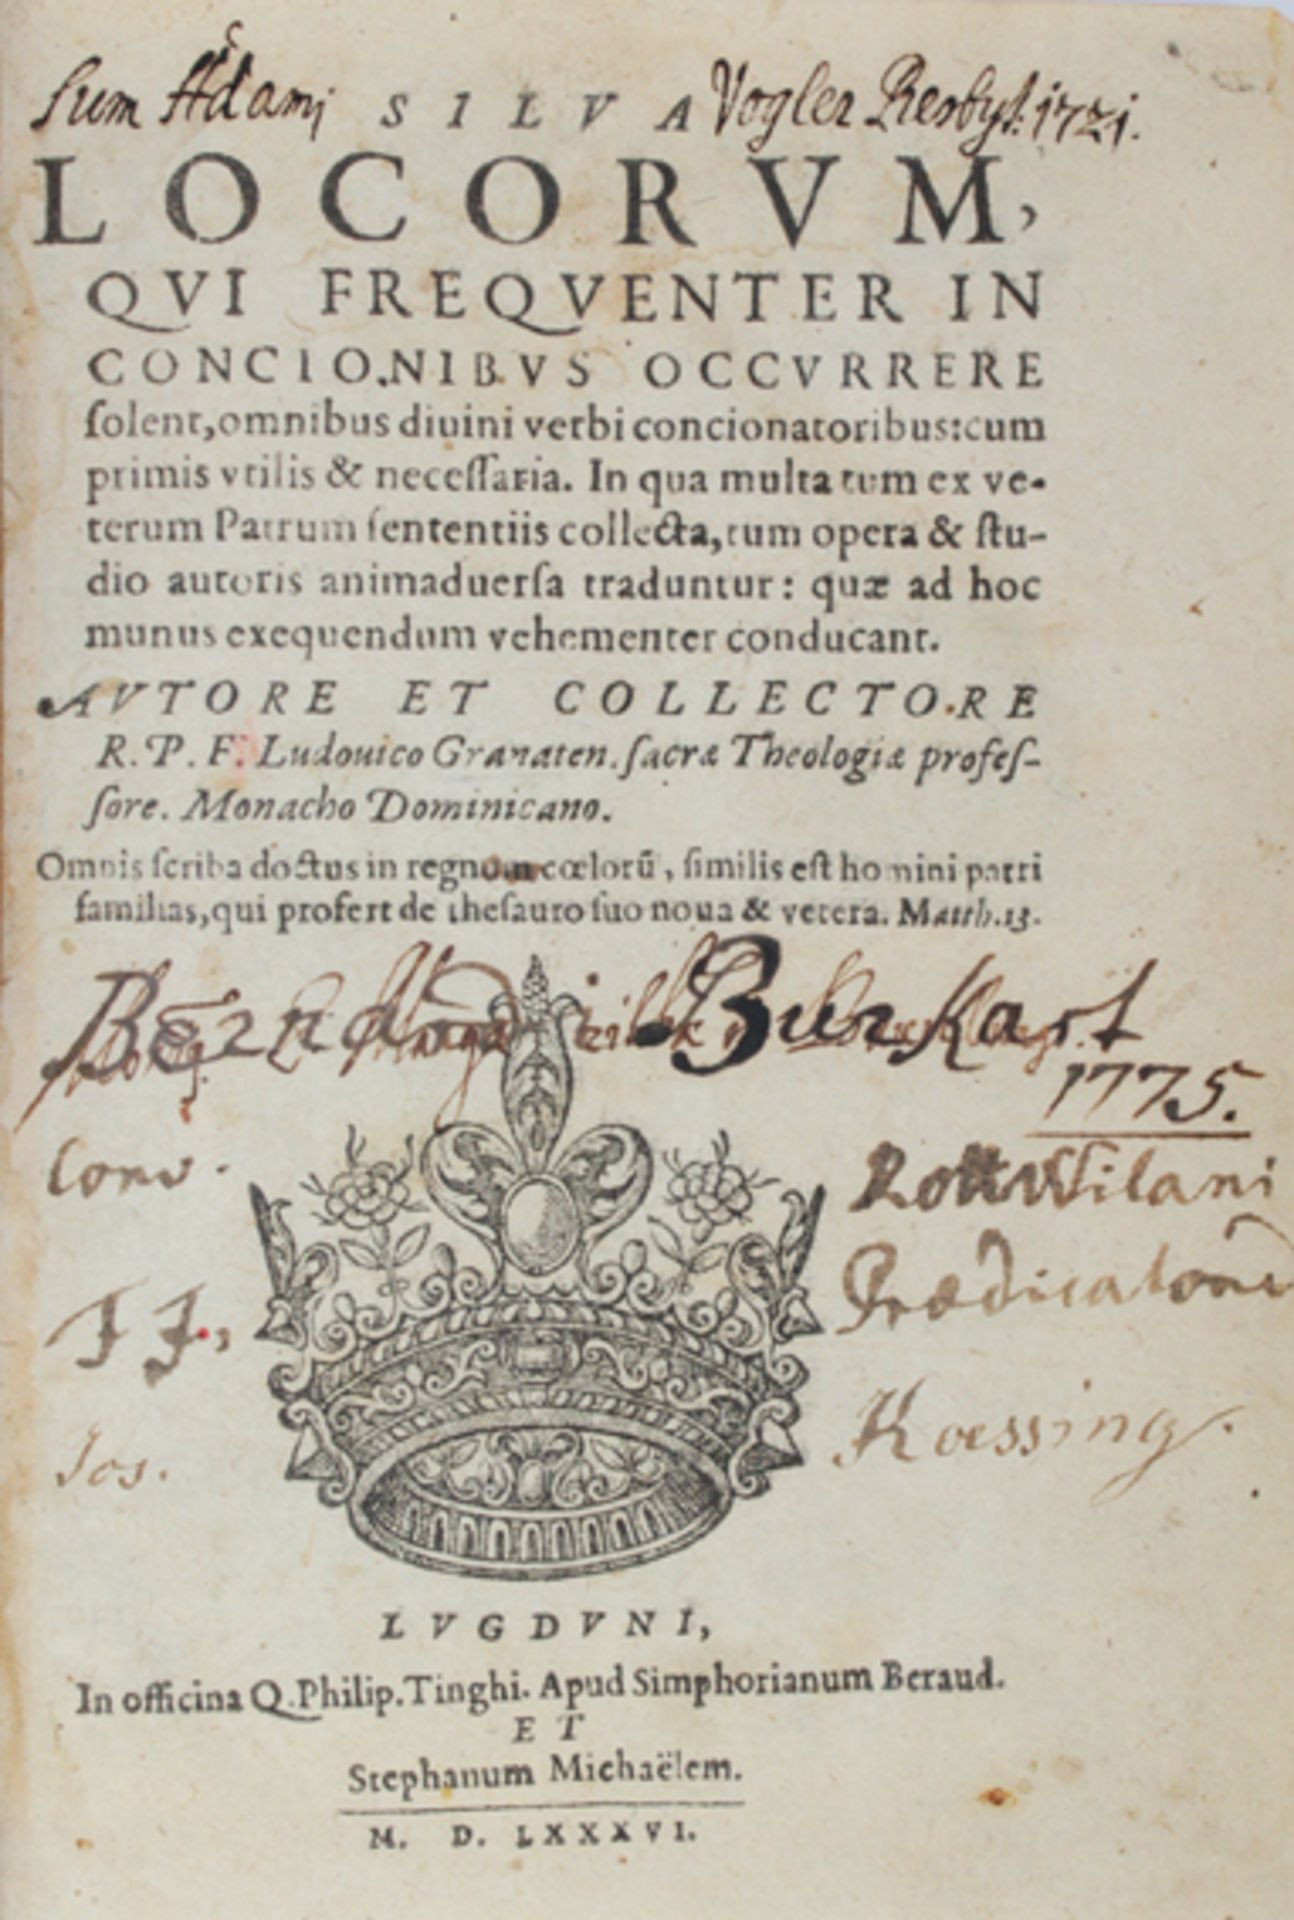 Sum Adami SILVA Vogler Presbyt. 1721.
LOCORVM,
QVI FREQVENTER IN
CONCIONIBVS OCCVRRERE
ſolent, omnibus diuini verbi concionatoribus: cum
primis vtilis & neceſſaria. In qua multa tum ex ve-
terum Patrum ſententiis collecta, tum opera & ſtu-
dio autoris animaduerſa traduntur: quæ ad hoc
munus exequendum vehementer conducant.
AVTORE ET COLLECTORE
R. P. F. Ludouico Granaten. ſacræ Theologiæ profeſ-
ſore. Monacho Dominicano.
Omnis ſcriba doctus in regnum cœlorū, ſimilis eſt homini patri
familias, qui profert de theſauro ſuo noua & vetera. Matth. 13.
Burkart
1775.
Conv. Rottwilani
FF. Prædicatorū
Jos. Koessing.
LVGDVNI,
In officina Q. Philip. Tinghi. Apud Simphorianum Beraud.
ET
Stephanum Michaëlem.
M. D. LXXXVI.